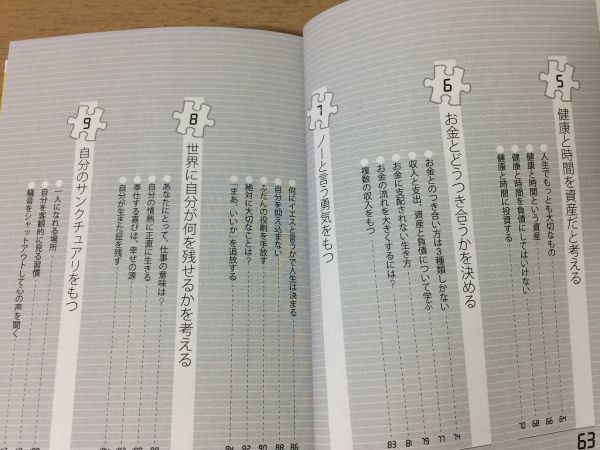 5
健康と時間を資産だと考える
63
●人生でもっとも大切なもの 64
●健康と時間という資産 66
●健康と時間を負債にしてはいけない 68
●健康と時間に投資する 70
6
お金とどうつき合うかを決める
●お金とのつき合い方は3種類しかない 74
●収入と支出、資産と負債について学ぶ 77
●お金に支配されない生き方 79
●お金の流れを大きくするには? 81
●複数の収入をもつ 83
7
ノーと言う勇気をもつ
●何にイエスと言うかで人生は決まる 86
●自分を抑え込まない 88
●ふだんの役割を手放す 90
●絶対に大切なことは? 92
●「まあ、いいか」を追放する 94
8
世界に自分が何を残せるかを考える
●あなたにとって、仕事の意味は?
●自分の情熱に正直に生きる
●奉仕する喜びは、幸せの源
●自分が生きた証を残す
9
自分のサンクチュアリをもつ
●一人になれる場所
●自分を客観的に見る習慣
●騒音をシャットアウトして心の声を聞く